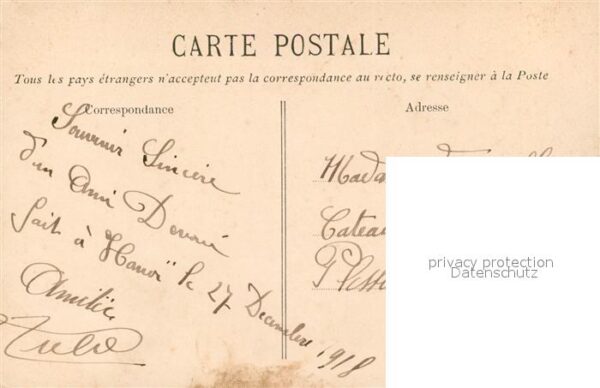 CARTE POSTALE
Tous les pays étrangers n'acceptent pas la correspondance au recto, se renseigner à la Poste
Correspondance
Adresse
Souvenir Sincère
d'un Ami Dévoué
fait à Hanoï le 27 Décembre 1918
Amitié
Madam
Cateau
Plessi
privacy protection
Datenschutz